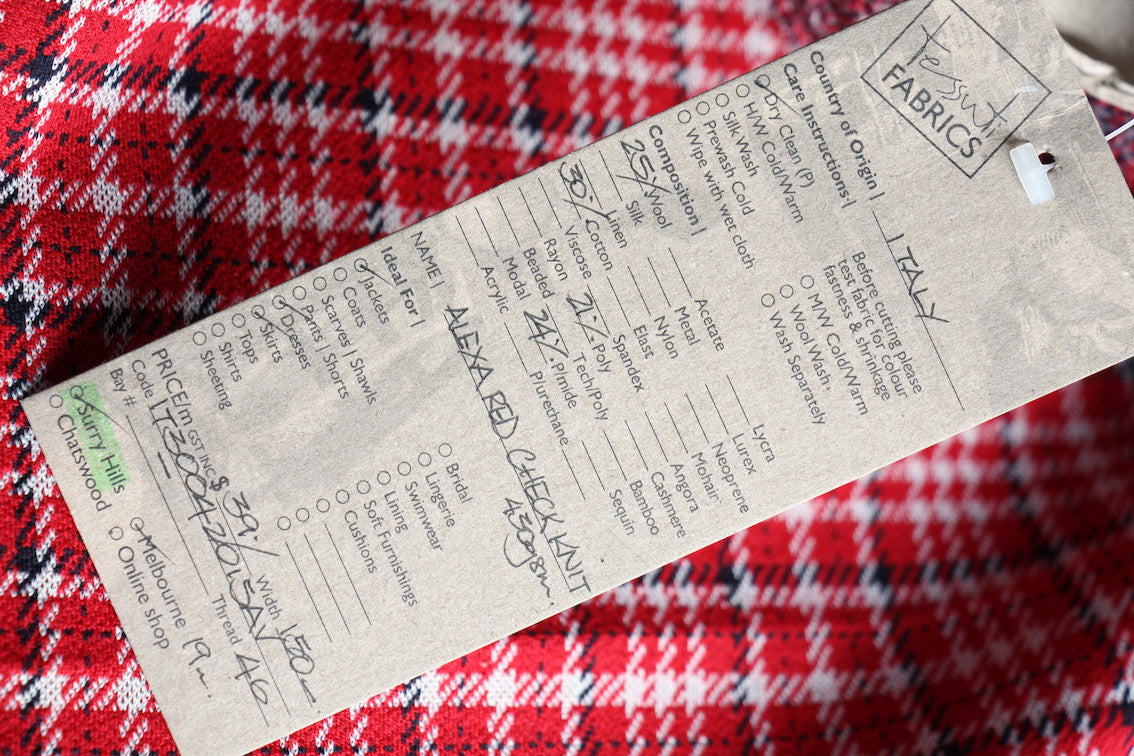 Tessuti
FABRICS
Country of Origin | ITALY
Care Instructions |
Dry Clean (P)
H/W Cold/Warm
Silk Wash
Prewash Cold
Wipe with wet cloth
Before cutting please
test fabric for colour
fastness & shrinkage
M/W Cold/Warm
Wool Wash.
Wash Separately
Composition |
25% Wool
Silk
Linen
30% Cotton
Viscose
Rayon
Beaded
Modal
Acrylic
Acetate
Metal
Nylon
Elast
Spandex
21% Poly
Tech/Poly
24% P/mide
P/urethane
Lycra
Lurex
Neoprene
Mohair
Angora
Cashmere
Bamboo
Sequin
NAME | ALEXA RED CHECK KNIT
430gsm.
Ideal For |
Jackets
Coats
Scarves | Shawls
Pants | Shorts
Dresses
Skirts
Tops
Shirts
Sheeting
Bridal
Lingerie
Swimwear
Lining
Soft Furnishings
Cushions
PRICE/m GST INC $ 39.- Width 150-
Code IT30042015AV Thread 46
Bay #
Surry Hills
Chatswood
Melbourne 19m.
Online shop